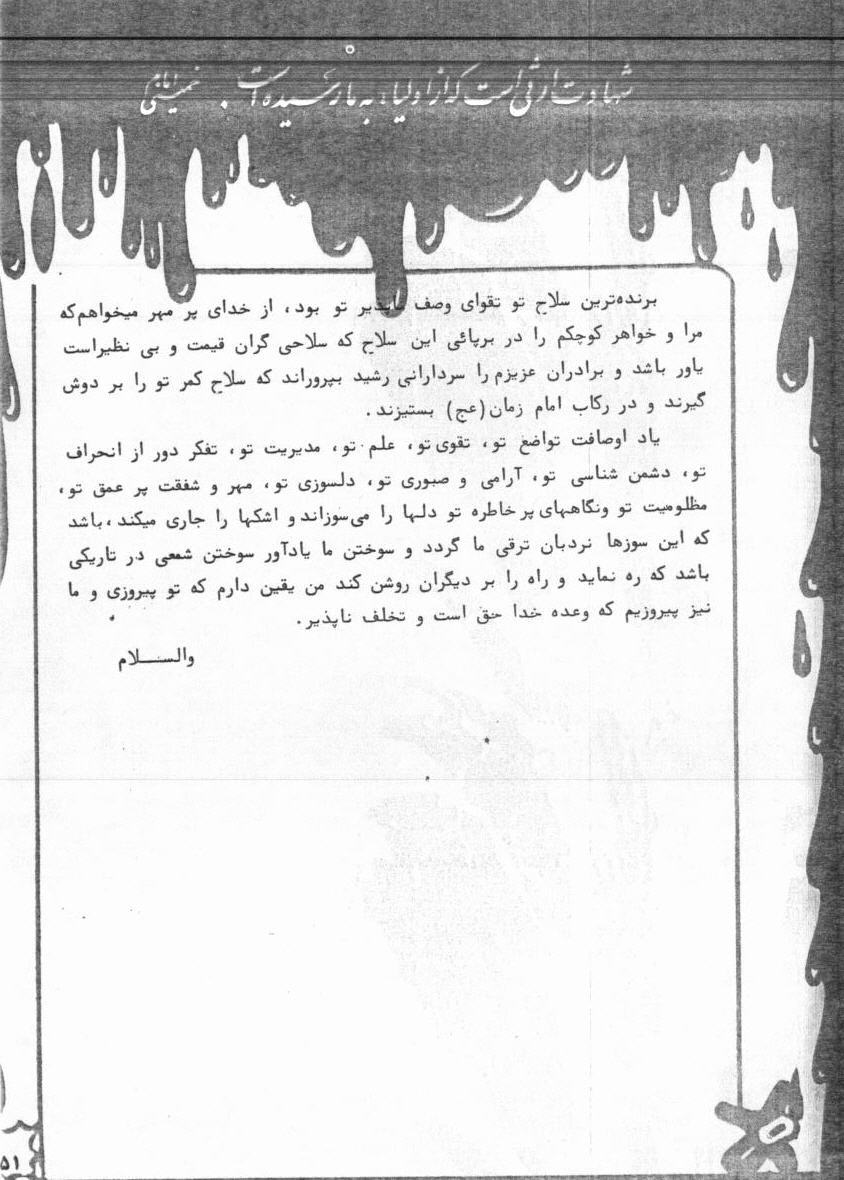 شهادت ارثی است که از اولیاء به ما رسیده است. امام خمینی
برنده‌ترین سلاح تو تقوای وصف ناپذیر تو بود، از خدای پر مهر میخواهم که
مرا و خواهر کوچکم را در برپائی این سلاح که سلاحی گران قیمت و بی نظیر است
یاور باشد و برادران عزیزم را سردارانی رشید بپروراند که سلاح کمر تو را بر دوش
گیرند و در رکاب امام زمان (عج) بستیزند.
یاد اوصافت تواضع تو، تقوی تو، علم تو، مدیریت تو، تفکر دور از انحراف
تو، دشمن شناسی تو، آرامی و صبوری تو، دلسوزی تو، مهر و شفقت پر عمق تو،
مظلومیت تو ونگاههای پر خاطره تو دلها را می‌سوزاند و اشکها را جاری میکند، باشد
که این سوزها نردبان ترقی ما گردد و سوختن ما یادآور سوختن شمعی در تاریکی
باشد که ره نماید و راه را بر دیگران روشن کند من یقین دارم که تو پیروزی و ما
نیز پیروزیم که وعده خدا حق است و تخلف ناپذیر.
والســـلام
۵۱